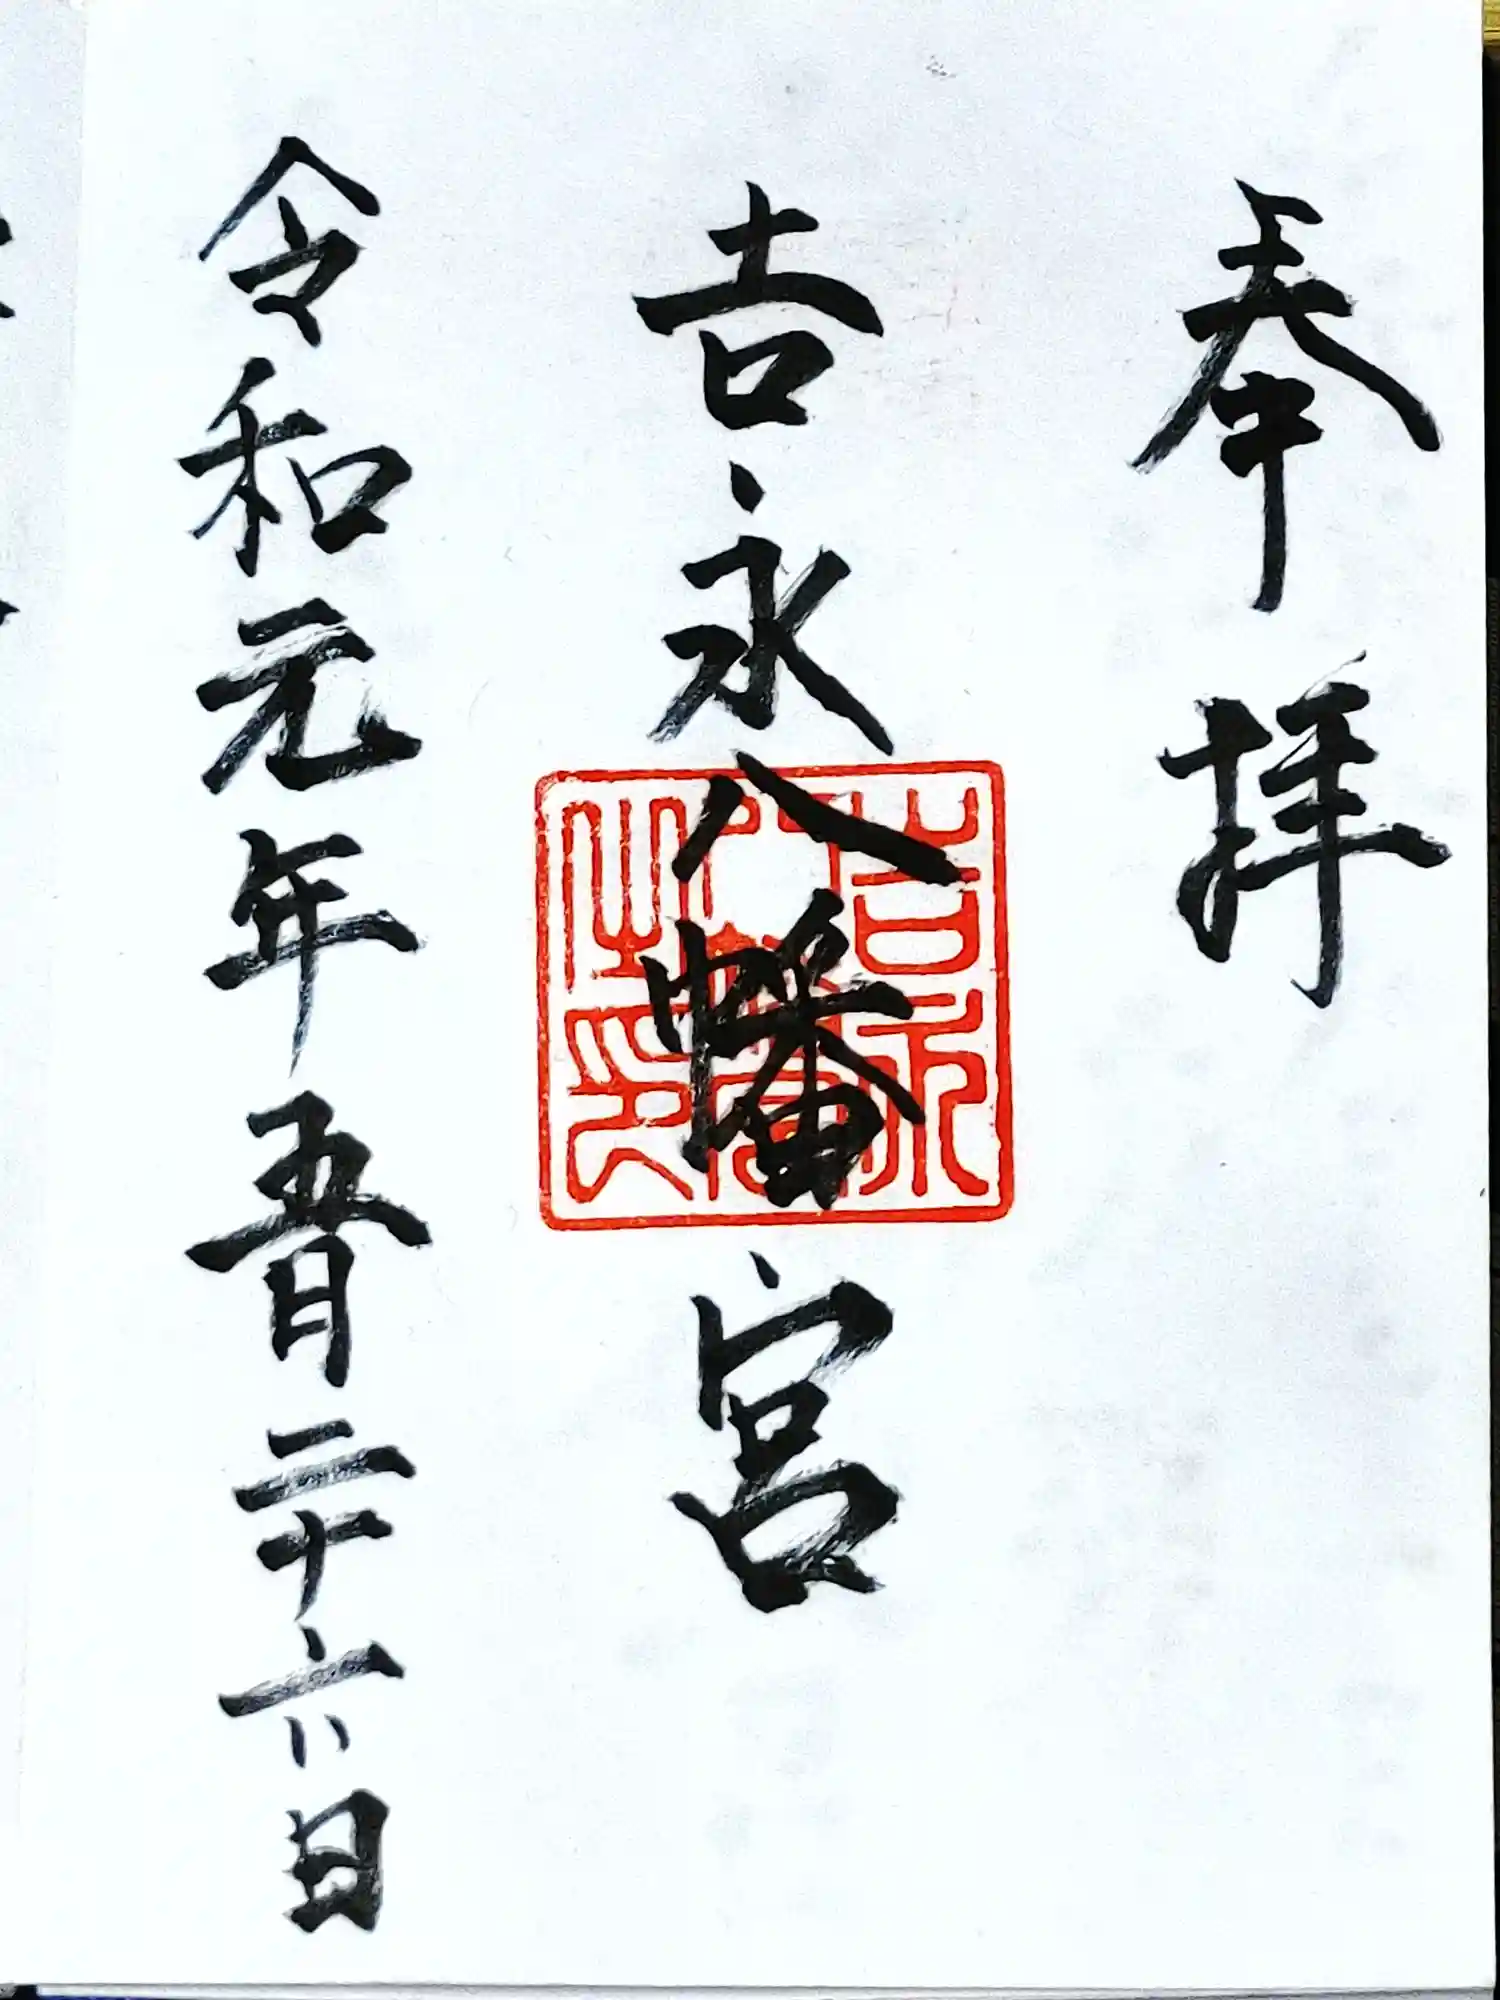 奉拝
吉永八幡宮
令和元年五月二十六日
吉永八幡宮之印